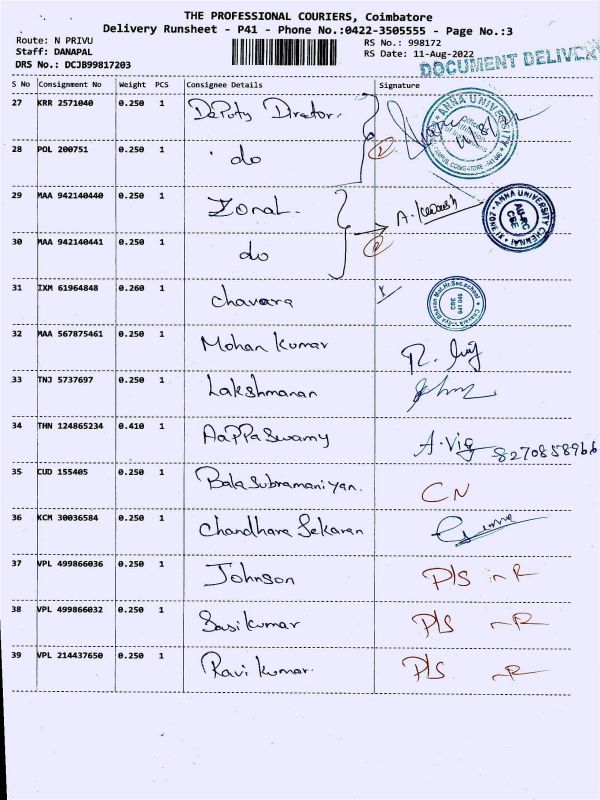 THE PROFESSIONAL COURIERS, Coimbatore
Delivery Runsheet - P41 - Phone No.:0422-3505555 - Page No.:3
Route: N PRIVU
RS No.: 998172
Staff: DANAPAL
RS Date: 11-Aug-2022
DRS No.: DCJB99817203
DOCUMENT DELIVERY
S No Consignment No Weight PCS Consignee Details Signature
27 KRR 2571040 0.250 1 Deputy Director.
ANNA UNIVERSITY
28 POL 200751 0.250 1 do
29 MAA 942140440 0.250 1 Zonal.
ANNA UNIVERSITY CHENNAI
AU-RC
CBE
30 MAA 942140441 0.250 1 do
31 IXM 61964848 0.260 1 chavara
CBE
641 048
32 MAA 567875461 0.250 1 Mohan Kumar
33 TNJ 5737697 0.250 1 Lakshmanan
34 THN 124865234 0.410 1 Aappa Swamy A. Vig 8270858966
35 CUD 155405 0.250 1 Bala Subramaniyan. CN
36 KCM 30036584 0.250 1 Chandhara Sekaran
37 VPL 499866036 0.250 1 Johnson P/S
38 VPL 499866032 0.250 1 Sasikumar P/S
39 VPL 214437650 0.250 1 Ravi kumar. P/S